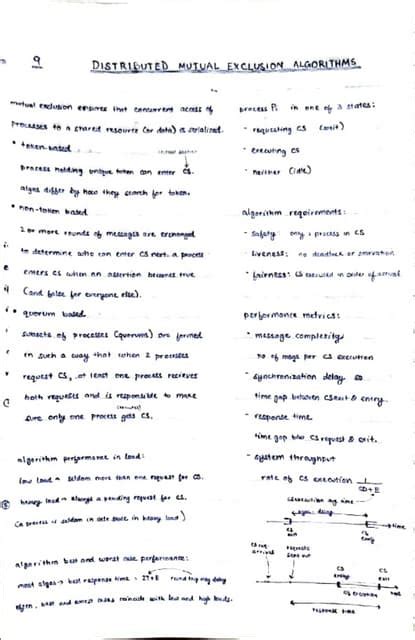 9
DISTRIBUTED MUTUAL EXCLUSION ALGORITHMS
mutual exclusion ensures that concurrent access of
processes to a shared resource (or data) is serialized.
• token-based
process holding unique token can enter CS.
algos differ by how they search for token.
• non-token based
2 or more rounds of messages are exchanged
to determine who can enter CS next. a process
enters CS when an assertion becomes true
(and false for everyone else).
• quorum based
subsets of processes (quorums) are formed
in such a way that when 2 processes
request CS, at least one process recieves
both requests and is responsible to make
sure only one process gets CS.
algorithm performance in load:
low load → seldom more than one request for CS.
heavy load → always a pending request for CS.
(a process is seldom in idle state in heavy load)
algorithm best and worst case performance:
most algos → best response time = 2T+E round trip msg delay
often, best and worst cases coincide with low and high loads.
process Pi in one of 3 states:
- requesting CS (wait)
- executing CS
- neither (idle)
algorithm requirements:
- safety: only 1 process in CS
- liveness: no deadlock or starvation
- fairness: CS executed in order of arrival
performance metrics:
- message complexity
no of msgs per CS execution
- synchronization delay SD
time gap between CS exit & entry
- response time
time gap b/w CS request & exit.
- system throughput
rate of CS execution 1
SD+E
CS execution avg time
sync. delay
time
CS exit
CS entry
CS req arrival
requests sent out
CS entry
CS exit
CS EXECUTION
time
RESPONSE TIME